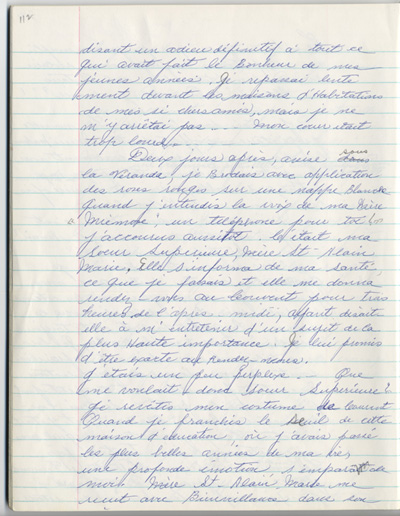 112
disant un adieu définitif à tout ce
qui avait fait le Bonheur de mes
jeunes années. Je repassai lente
ment devant les maisons d'Habitations
de mes si chers amis, mais je ne
m'y arrêtai pas -- mon cœur était
trop lourd..
Deux jours après, assise sous
la Véranda je Brodais avec application
des rons rouges sur une nappe Blanche
Quand j'entendis la voix de ma Mère
Mémoué, un téléphone pour toi
j'accourus aussitôt. C'était ma
Soeur Supérieure, Mère St-Alain
Marie, Elle s'informa de ma santé,
ce que je faisais et elle me donna
rendez-vous au Couvent pour trois
heures de l'après midi, ayant disait
elle à m'entretenir d'un sujet de la
plus Haute importance. Je lui promis
d'être exacte au Rendez-vous.
J'étais un peu perplexe -- Que
me voulait donc Soeur Supérieure?
Je revêtis mon costume de Couvent
Quand je franchis le Seuil de cette
maison d'éducation, où j'avais passé
les plus belles années de ma vie,
une profonde émotion, s'empara de
moi. Mère St Alain Marie me
reçut avec Bienveillance dans son